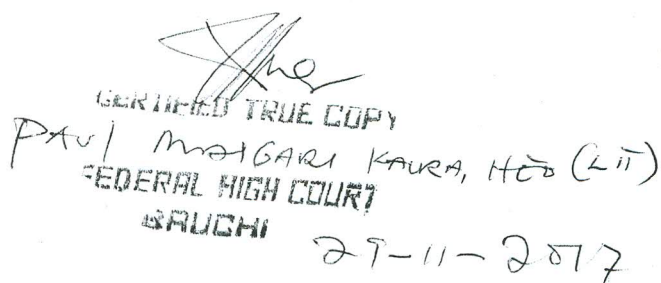 CERTIFIED TRUE COPY
PAUL MAIGARI KAURA, HEO (LIT)
FEDERAL HIGH COURT
BAUCHI
29-11-2017